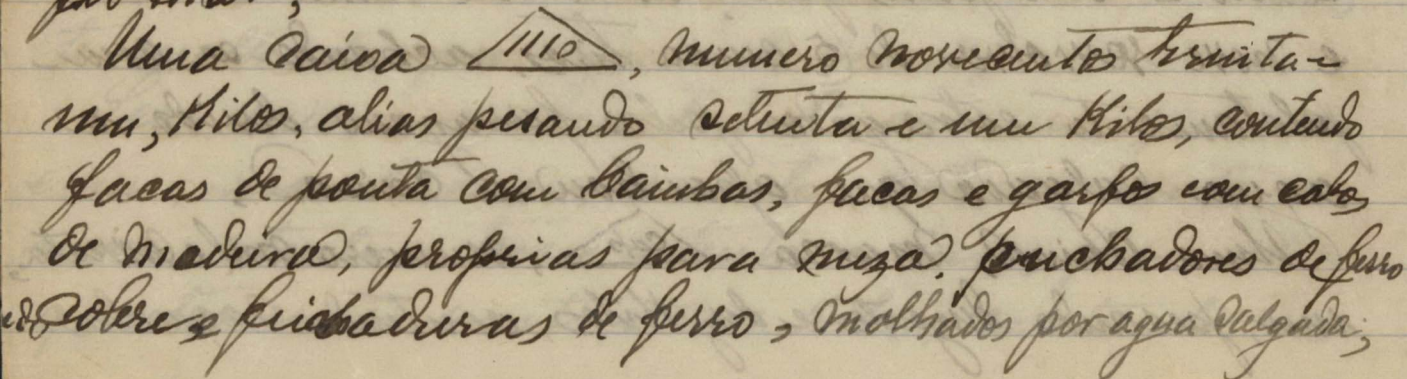 Uma Caixa 1110, numero novecentos trinta e
um, Kilos, alias pesando setenta e um Kilos, contendo
facas de ponta com bainhas, facas e garfos com cabos
de madeira, proprias para meza, puchadores de ferro
cobre e feichaduras de ferro, molhados por agua salgada;